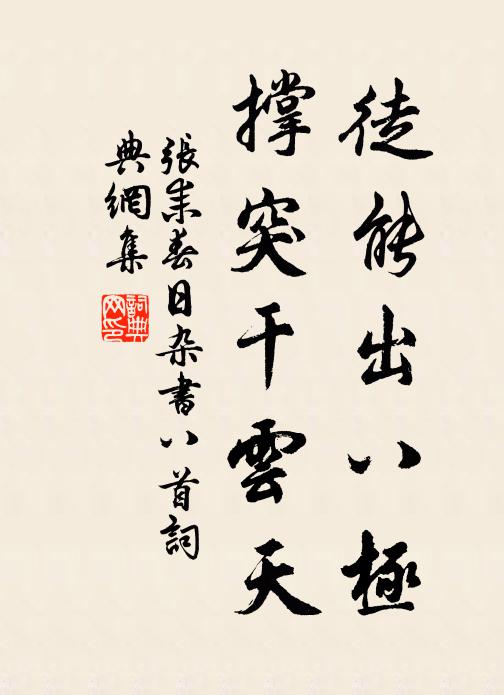 徒能出八極
撐突干雲天
張耒春日杂書八首詞
典網集
詞典网印